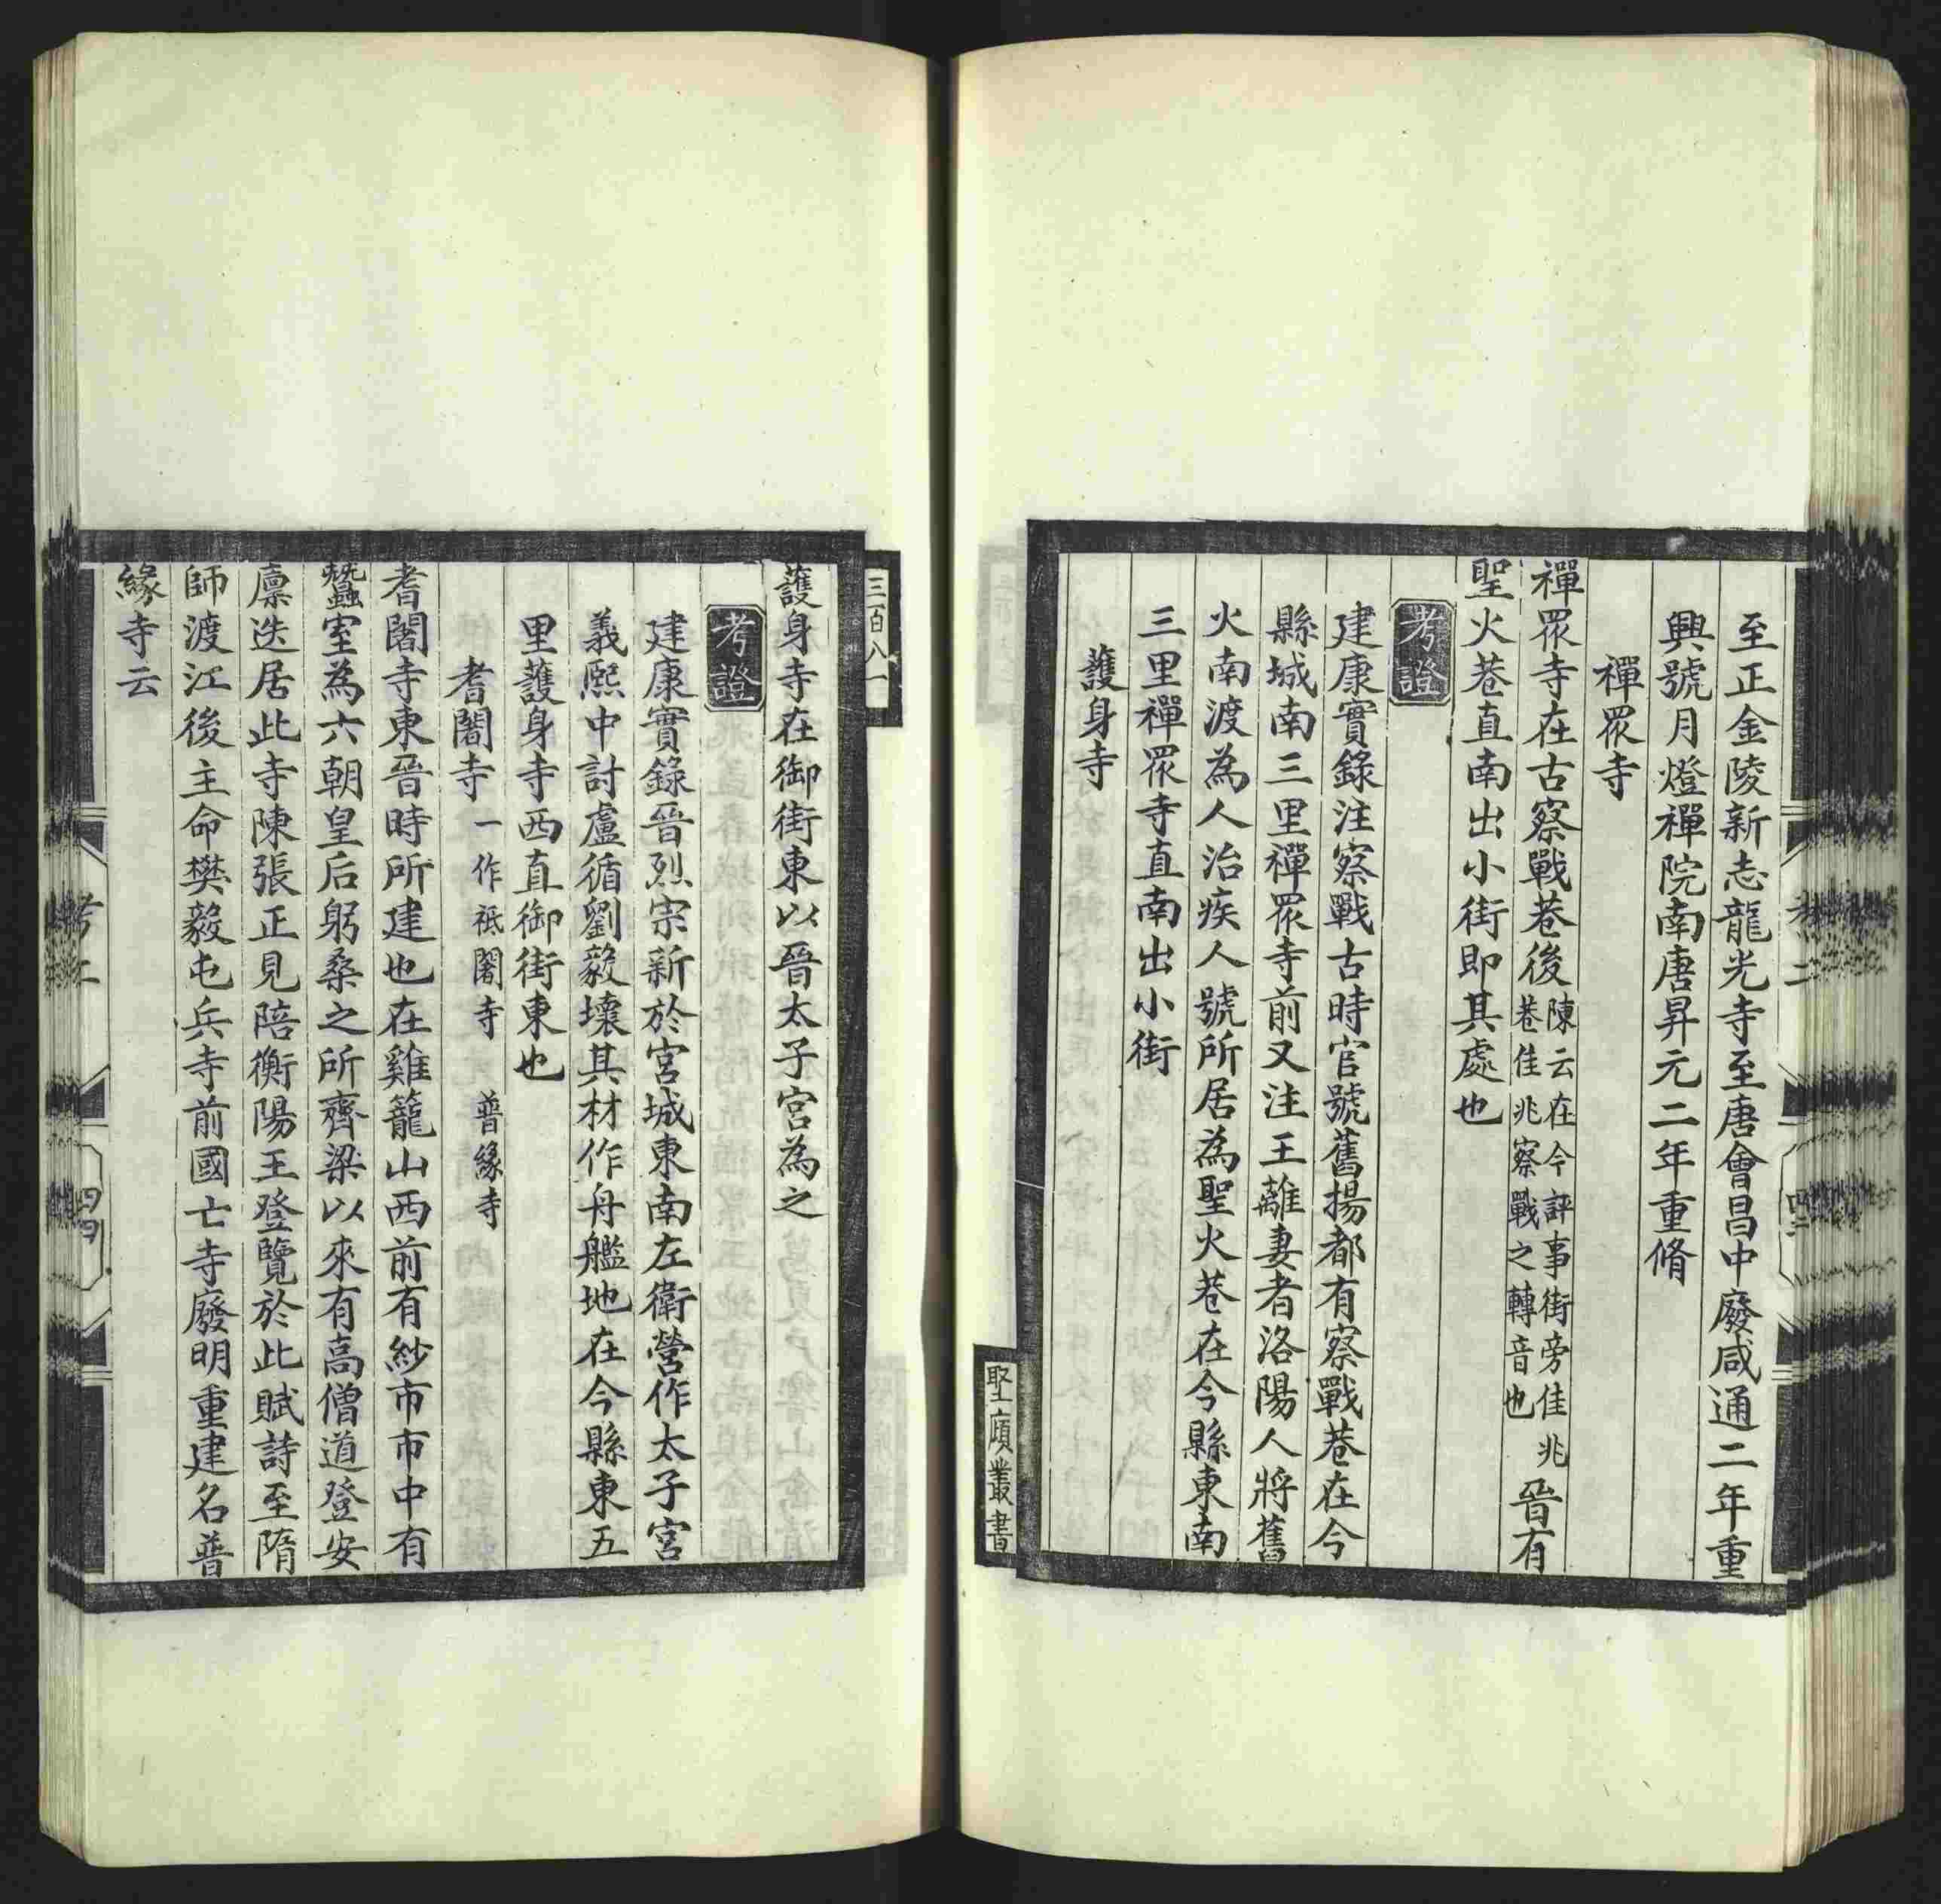 至正金陵新志龍光寺至唐會昌中廢咸通二年重
興號月燈禪院南唐昇元二年重脩
禪眾寺
禪眾寺在古察戰巷後陳云在今評事街旁佳兆巷佳兆察戰之轉音也晉有
聖火巷直南出小街即其處也
考證
建康實錄注察戰古時官號舊揚都有察戰巷在今
縣城南三里禪眾寺前又注王離妻者洛陽人將舊
火南渡為人治疾人號所居為聖火巷在今縣東南
三里禪眾寺直南出小街
護身寺
堅頎叢書
三百八一
護身寺在御街東以晉太子宮為之
考證
建康實錄晉烈宗新於宮城東南左衛營作太子宮
義熙中討盧循劉毅壞其材作舟艦地在今縣東五
里護身寺西直御街東也
耆闍寺 一作祗闍寺 普緣寺
耆闍寺東晉時所建也在雞籠山西前有紗市市中有
蠶室為六朝皇后躬桑之所齊梁以來有高僧道登安
廪迭居此寺陳張正見陪衡陽王登覽於此賦詩至隋
師渡江後主命樊毅屯兵寺前國亡寺廢明重建名普
緣寺云
考二
四四